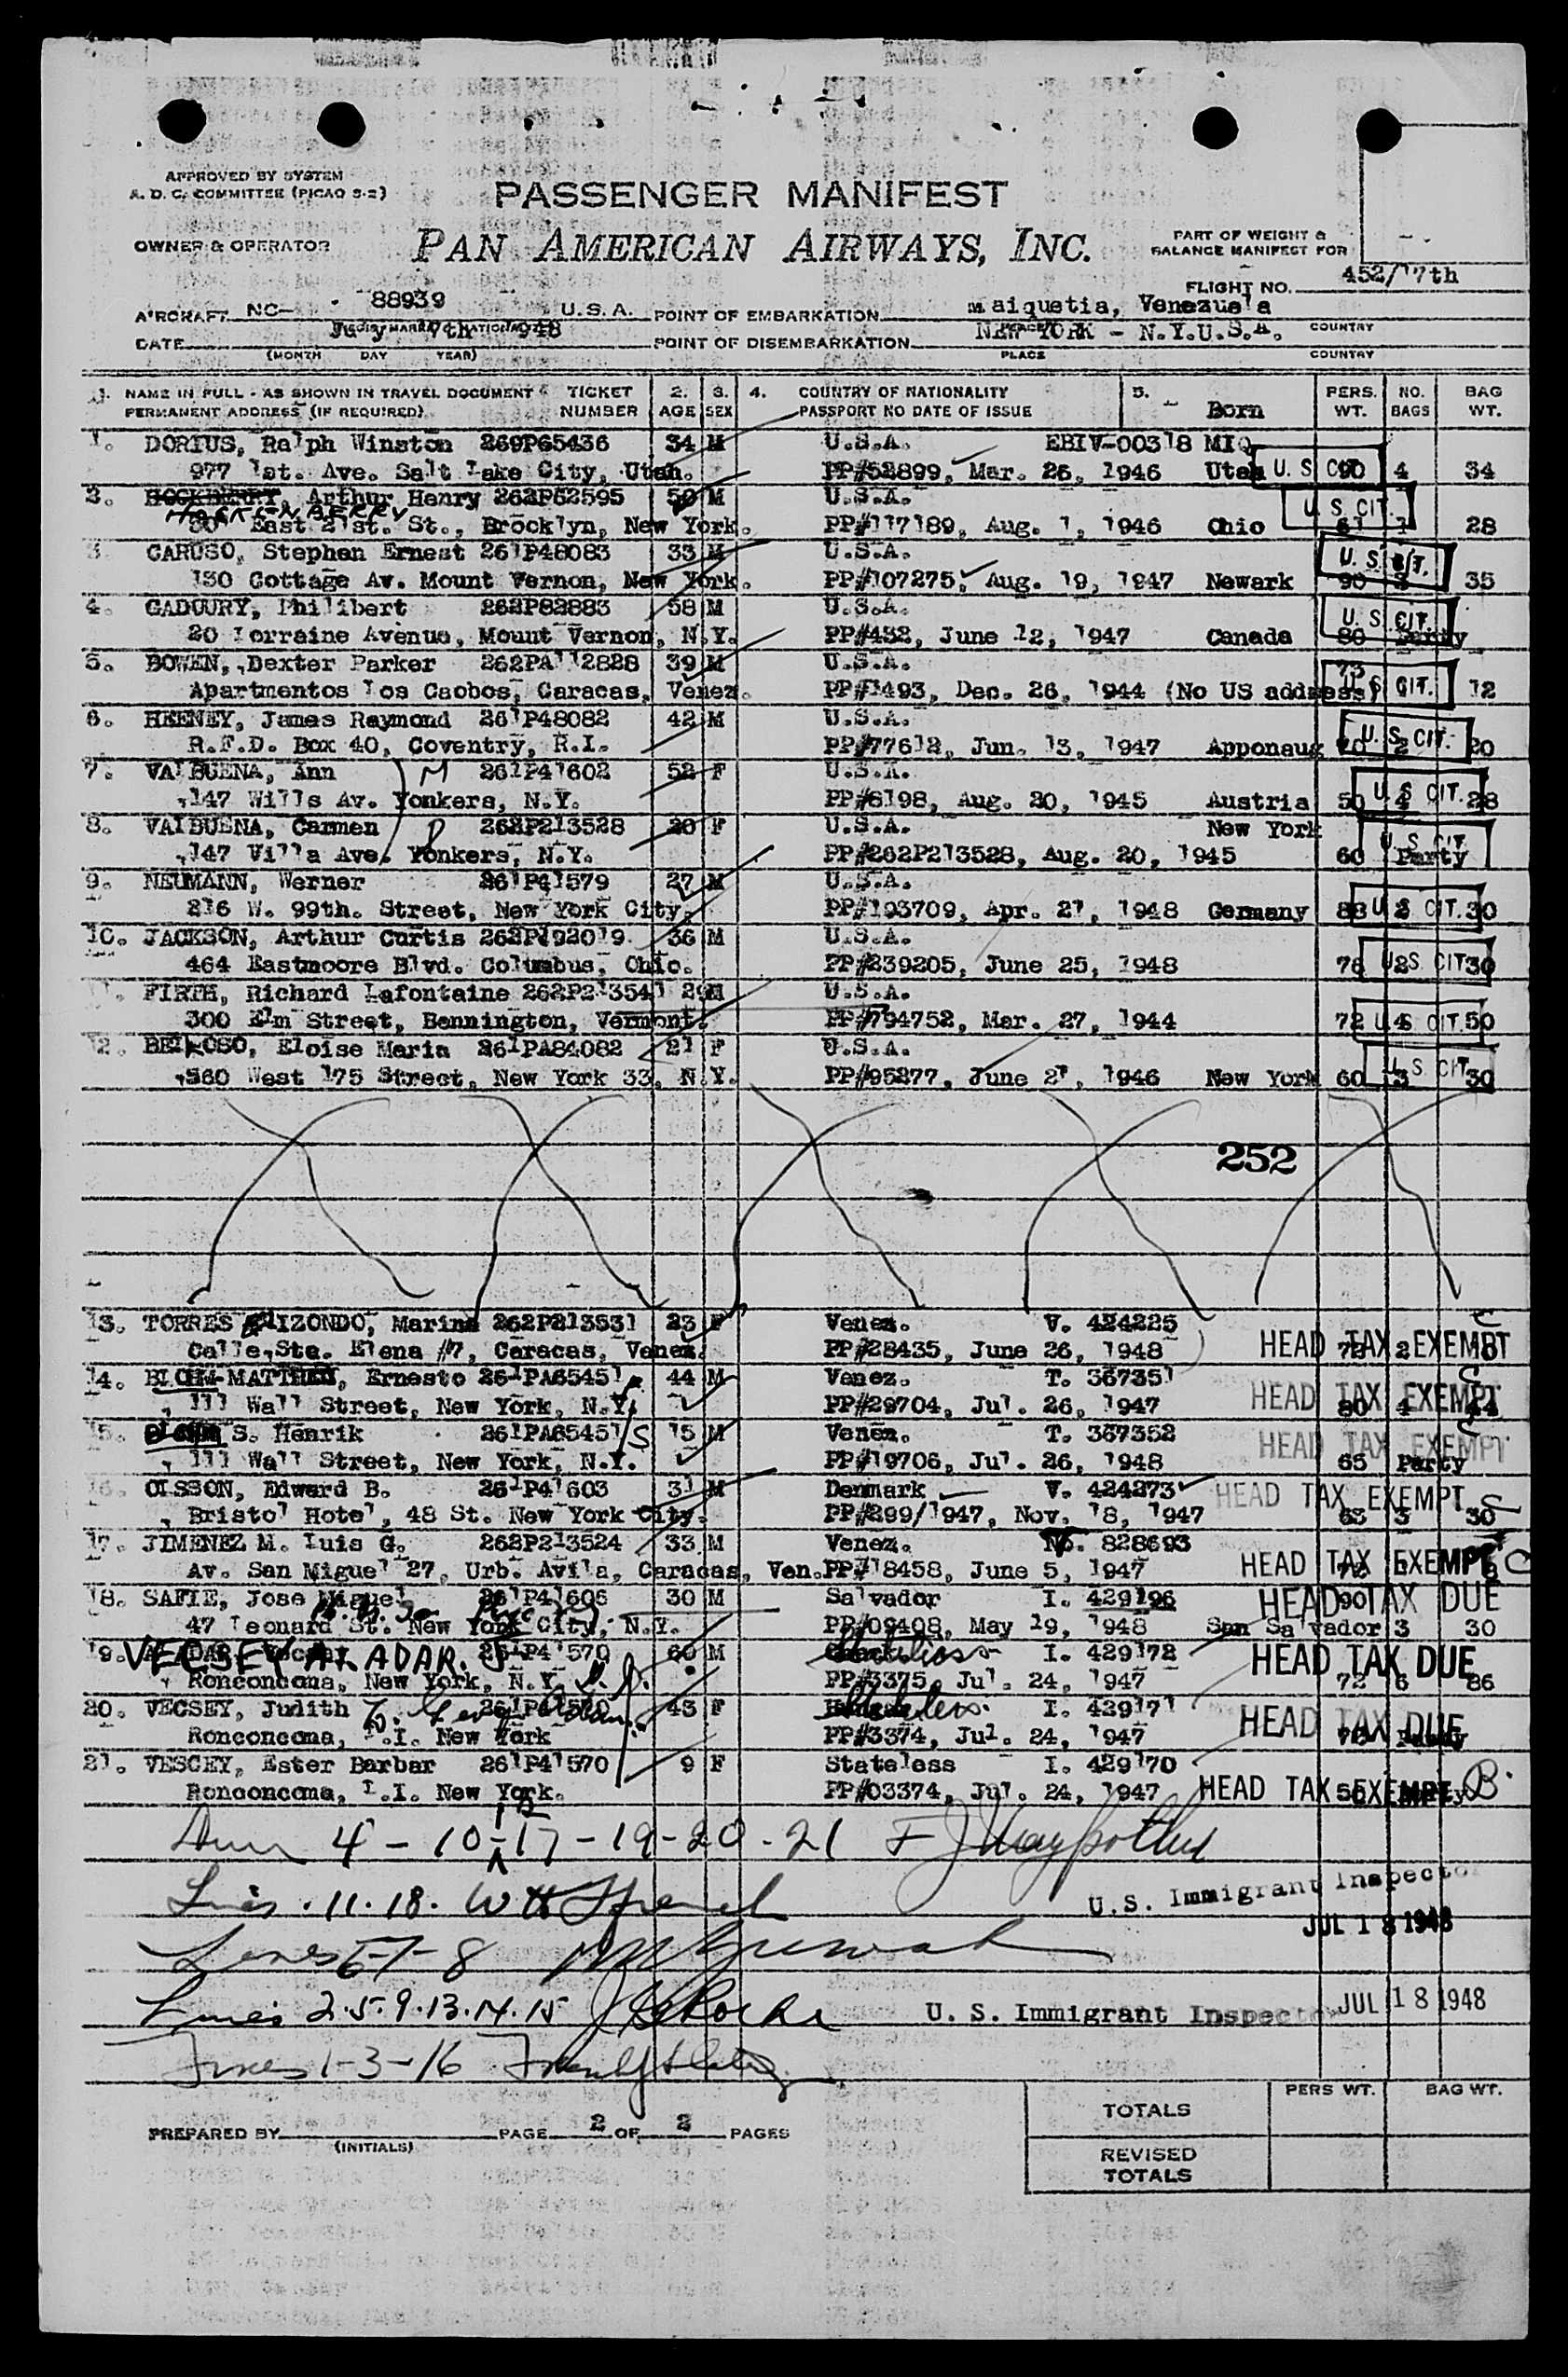 APPROVED BY SYSTEM
A. D. C. COMMITTEE (PICAO S-2)
PASSENGER MANIFEST
OWNER & OPERATOR
PAN AMERICAN AIRWAYS, INC.
PART OF WEIGHT &
BALANCE MANIFEST FOR
FLIGHT NO. 452/17th
AIRCRAFT NC- 88939 U.S.A. POINT OF EMBARKATION Maiquetia, Venezuela
DATE 1948 POINT OF DISEMBARKATION NEW YORK - N.Y.U.S.A. COUNTRY
(MONTH DAY YEAR) PLACE COUNTRY
1. NAME IN FULL - AS SHOWN IN TRAVEL DOCUMENT TICKET 2. 3. 4. COUNTRY OF NATIONALITY 5. PERS. NO. BAG
PERMANENT ADDRESS (IF REQUIRED) NUMBER AGE SEX PASSPORT NO DATE OF ISSUE Born WT. BAGS WT.
1. DORIUS, Ralph Winston 269P65436 34 M U.S.A. EBIV-00318 MIQ
977 1st. Ave. Salt Lake City, Utah. PP#52899, Mar. 26, 1946 Utah U. S. CIT. 90 4 34
2. Arthur Henry 262P62595 50 M U.S.A.
HOCKENBERRY
East 21st. St., Brooklyn, New York. PP#117189, Aug. 1, 1946 Ohio U. S. CIT. 28
3. CARUSO, Stephen Ernest 261P48083 33 M U.S.A.
130 Cottage Av. Mount Vernon, New York. PP#107275, Aug. 19, 1947 Newark U. S. CIT. 90 35
4. GADOURY, Philibert 262P82883 58 M U.S.A.
20 Lorraine Avenue, Mount Vernon, N.Y. PP#432, June 12, 1947 Canada U. S. CIT. 80 Party
5. BOWEN, Dexter Parker 262PA112828 39 M U.S.A.
Apartmentos Los Caobos, Caracas, Venez. PP#1493, Dec. 26, 1944 (No US address) 73 U. S. CIT. 12
6. HEENEY, James Raymond 261P48082 42 M U.S.A.
R.F.D. Box 40, Coventry, R.I. PP#77612, Jun. 13, 1947 Apponaug U. S. CIT. 2 20
7. VALBUENA, Ann M 261P41602 52 F U.S.A.
147 Wills Av. Yonkers, N.Y. PP#6198, Aug. 20, 1945 Austria 50 4 U. S. CIT. 28
8. VALBUENA, Carmen D 262P213528 20 F U.S.A. New York
147 Villa Ave. Yonkers, N.Y. PP#262P213528, Aug. 20, 1945 60 Party U. S. CIT.
9. NEUMANN, Werner 261P41579 27 M U.S.A.
216 W. 99th. Street, New York City. PP#193709, Apr. 21, 1948 Germany 88 2 U. S. CIT. 30
10. JACKSON, Arthur Curtis 262P192019 36 M U.S.A.
464 Eastmoore Blvd. Columbus, Ohio. PP#239205, June 25, 1948 76 2 U. S. CIT. 30
11. FIRTH, Richard Lafontaine 262P213541 29 M U.S.A.
300 Elm Street, Bennington, Vermont. PP#794752, Mar. 27, 1944 72 4 U. S. CIT. 50
12. Eloise Maria 261PA84082 21 F U.S.A.
560 West 175 Street, New York 33, N.Y. PP#95277, June 21, 1946 New York 60 3 U. S. CIT. 30
252
13. TORRES ELIZONDO, Marina 262P213531 23 F Venez. V. 424225 C
Calle, Sta. Elena #7, Caracas, Venez. PP#28435, June 26, 1948 HEAD TAX EXEMPT 2
14. BLOHM-MATTHEW, Ernesto 261PA65451 44 M Venez. T. 367351 C
111 Wall Street, New York, N.Y. PP#29704, Jul. 26, 1947 HEAD TAX EXEMPT 80 4 44
15. S. Henrik 261PA65451 S 15 M Venez. T. 367352 C
111 Wall Street, New York, N.Y. PP#19706, Jul. 26, 1948 HEAD TAX EXEMPT 65 Party
16. OLSSON, Edward B. 261P41603 31 M Denmark V. 424273
Bristol Hotel, 48 St. New York City. PP#299/1947, Nov. 18, 1947 HEAD TAX EXEMPT 63 3 30 C
17. JIMENEZ M. Luis G. 262P213524 33 M Venez. 828693
Av. San Miguel 27, Urb. Avila, Caracas, Ven. PP#18458, June 5, 1947 HEAD TAX EXEMPT C
18. SAFIE, Jose Miguel 261P41606 30 M Salvador I. 429196 HEAD TAX DUE 90
47 Leonard St. New York City, N.Y. PP#09408, May 19, 1948 San Salvador 3 30
19. VECSEY ALADAR. 261P41570 60 M I. 429172 HEAD TAX DUE
Ronconcoma, New York, N.Y. PP#3375, Jul. 24, 1947 72 6 86
20. VECSEY, Judith 261P41570 43 F I. 429171 HEAD TAX DUE
Ronconcoma, L.I. New York PP#3374, Jul. 24, 1947 Party
21. VESCEY, Ester Barbar 261P41570 9 F Stateless I. 429170
Ronconcoma, L.I. New York. PP#03374, Jul. 24, 1947 HEAD TAX EXEMPT B
4 - 10 - 12 - 17 - 19 - 20 - 21
U. S. Immigrant Inspector
JUL 18 1948
Lines . 11. 18.
Lines 6-7-8
Lines 2. 5. 9. 13. 14. 15 U. S. Immigrant Inspector JUL 18 1948
Lines 1-3-16
PERS WT. BAG WT.
TOTALS
PREPARED BY PAGE 2 OF 2 PAGES
(INITIALS)
REVISED
TOTALS